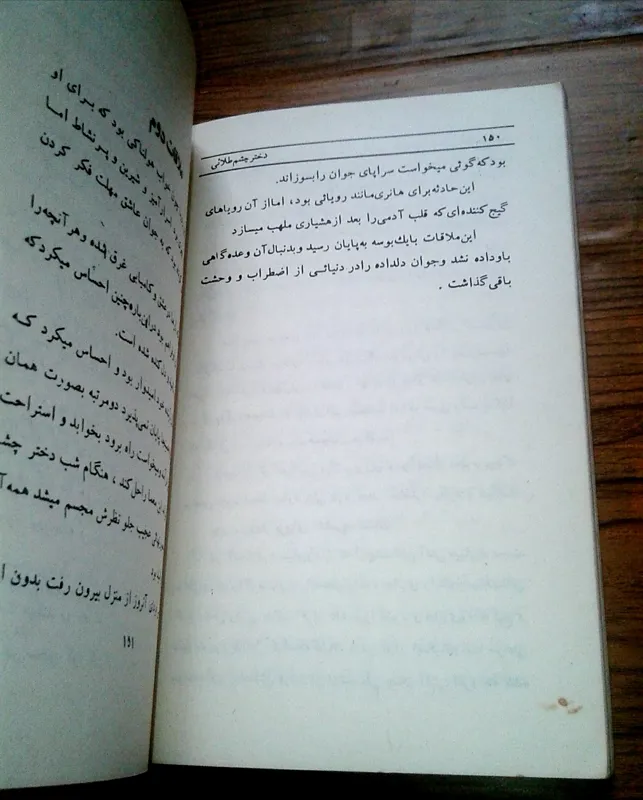 ۱۵۰
دختر چشم طلائی
بود که گوئی میخواست سراپای جوان را بسوزاند.
این حادثه برای هانری مانند رویائی بود، اما از آن رویاهای
گیج کننده‌ای که قلب آدمی را بعد از هشیاری ملهب میسازد
این ملاقات با یک بوسه به پایان رسید و بدنبال آن وعده گاهی
باو داده نشد و جوان دلداده را در دنیائی از اضطراب و وحشت
باقی گذاشت .
دوم
هولناکی بود که برای او
آمیز و شیرین و پر نشاط اما
که به جوان عاشق مهلت فکر کردن
عشق و کامیابی غرق شده و هر آنچه را
چنین احساس میکرد که
کنده شده است.
امیدوار بود و احساس میکرد که
پایان نمی‌پذیرد دو مرتبه بصورت همان
میخواست راه برود بخوابد و استراحت
معما را حل کند ، هنگام شب دختر چشم
عجیب جلو نظرش مجسم میشد همه
آنروز از منزل بیرون رفت بدون
۱۵۱